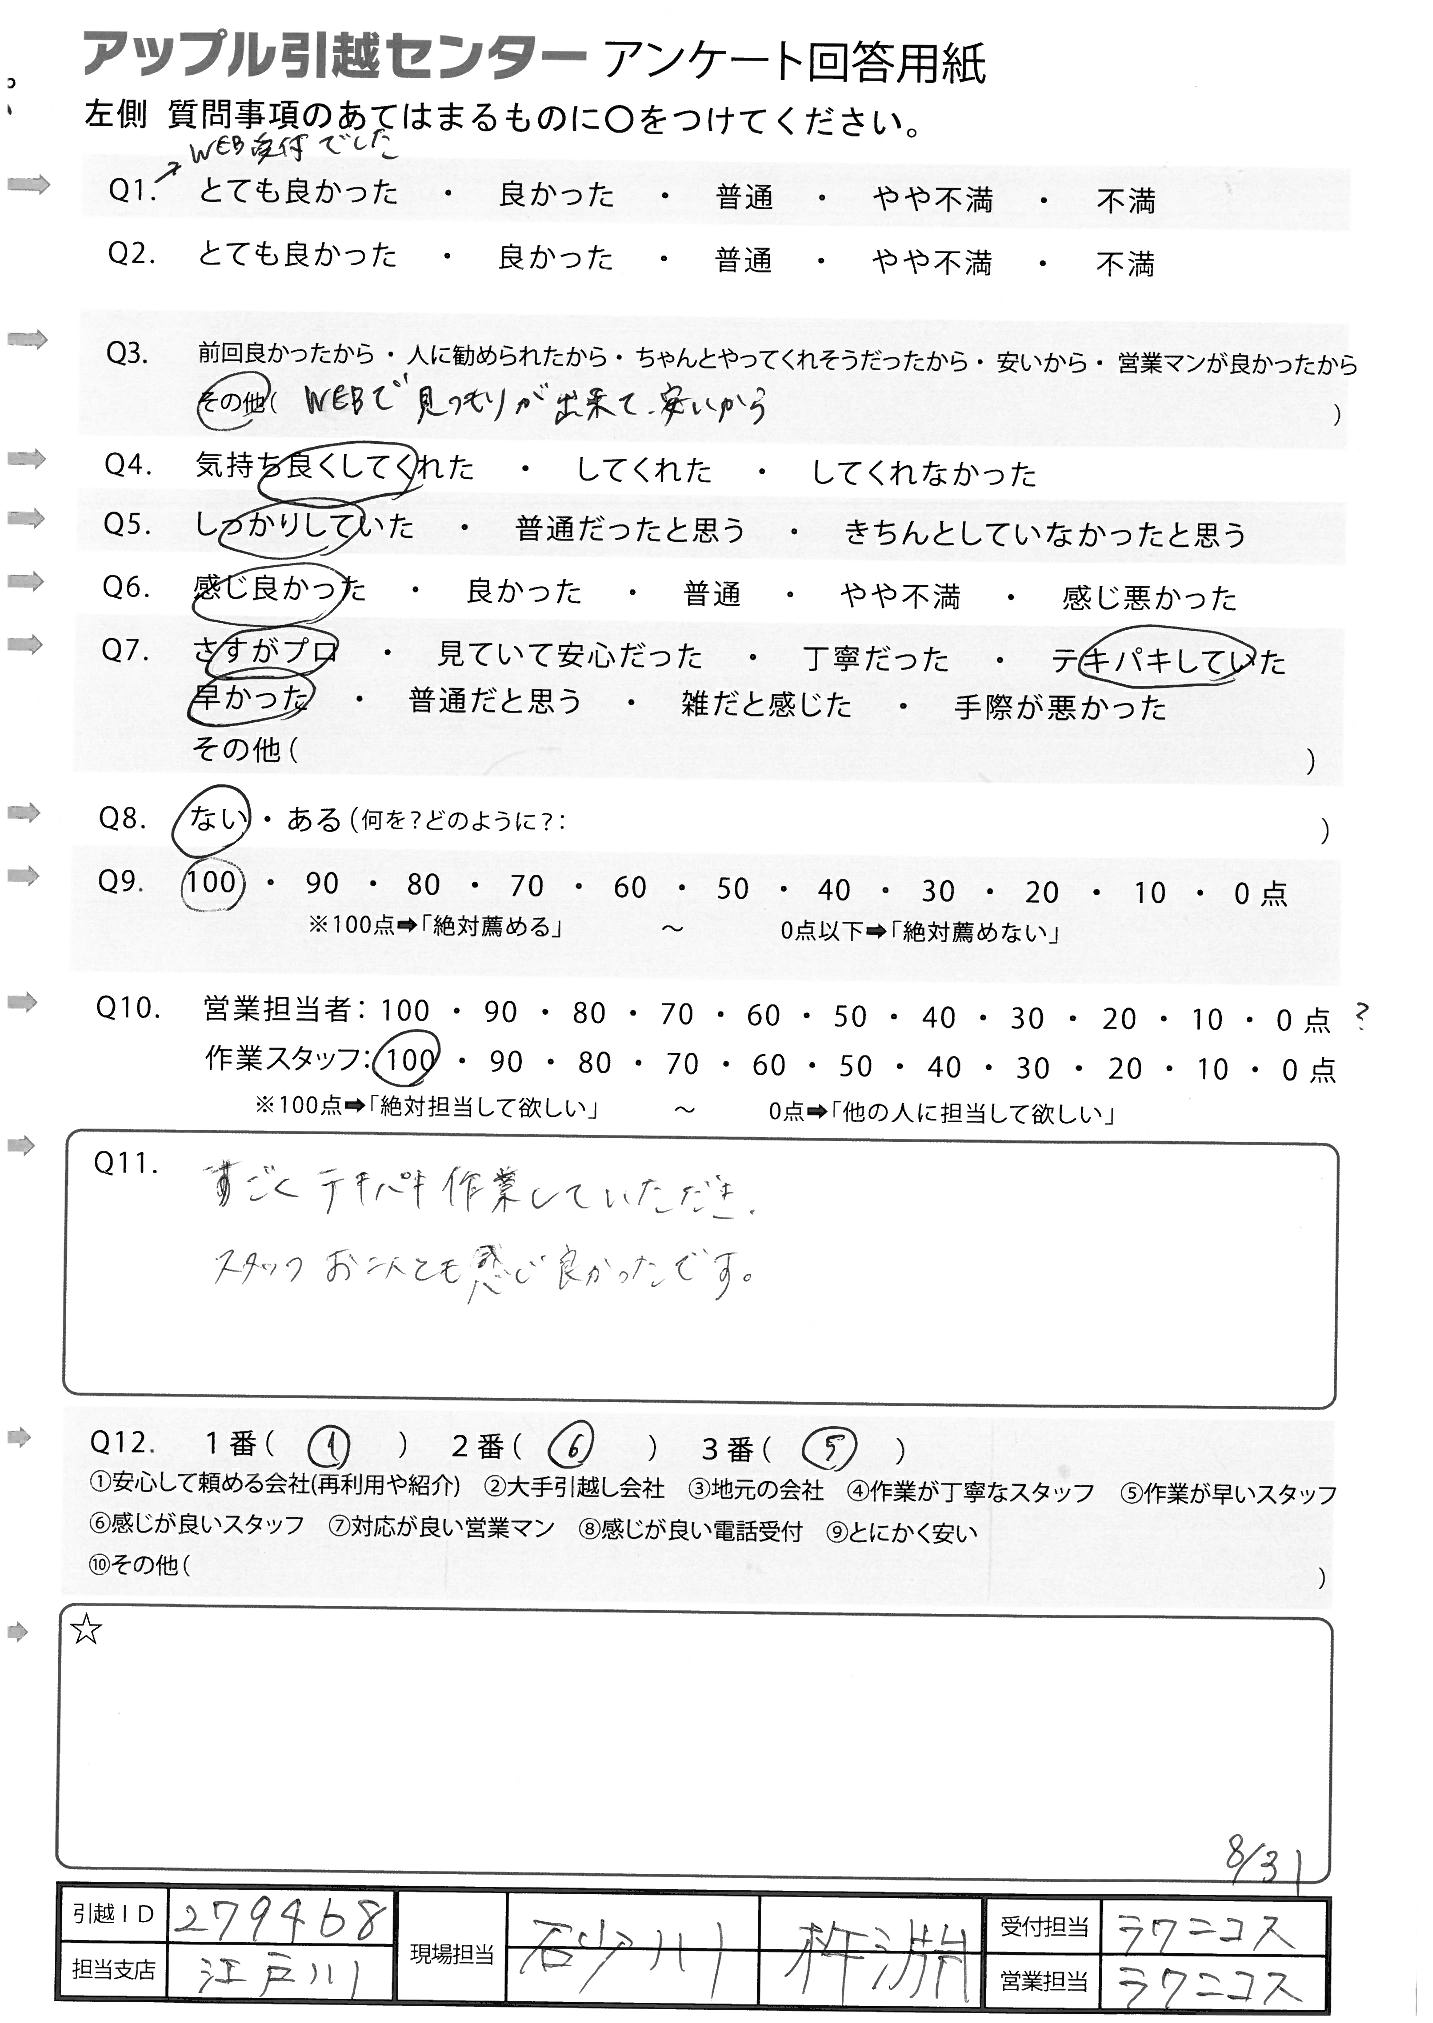 アップル引越センター アンケート回答用紙
左側 質問事項のあてはまるものに〇をつけてください。
WEB受付でした
Q1. とても良かった ・ 良かった ・ 普通 ・ やや不満 ・ 不満
Q2. とても良かった ・ 良かった ・ 普通 ・ やや不満 ・ 不満
Q3. 前回良かったから・人に勧められたから・ちゃんとやってくれそうだったから・安いから・営業マンが良かったから
その他( WEBで見つもりが出来て、安いから )
Q4. 気持ち良くしてくれた ・ してくれた ・ してくれなかった
Q5. しっかりしていた ・ 普通だったと思う ・ きちんとしていなかったと思う
Q6. 感じ良かった ・ 良かった ・ 普通 ・ やや不満 ・ 感じ悪かった
Q7. さすがプロ ・ 見ていて安心だった ・ 丁寧だった ・ テキパキしていた
早かった ・ 普通だと思う ・ 雑だと感じた ・ 手際が悪かった
その他( )
Q8. ない・ある(何を?どのように?: )
Q9. 100 ・ 90 ・ 80 ・ 70 ・ 60 ・ 50 ・ 40 ・ 30 ・ 20 ・ 10 ・ 0 点
※100点➡「絶対薦める」 ～ 0点以下➡「絶対薦めない」
Q10. 営業担当者: 100 ・ 90 ・ 80 ・ 70 ・ 60 ・ 50 ・ 40 ・ 30 ・ 20 ・ 10 ・ 0 点 ?
作業スタッフ: 100 ・ 90 ・ 80 ・ 70 ・ 60 ・ 50 ・ 40 ・ 30 ・ 20 ・ 10 ・ 0 点
※100点➡「絶対担当して欲しい」 ～ 0点➡「他の人に担当して欲しい」
Q11. すごくテキパキ作業していただき、
スタッフお二人とも感じ良かったです。
Q12. 1番( ① ) 2番( ⑥ ) 3番( ⑤ )
①安心して頼める会社(再利用や紹介) ②大手引越し会社 ③地元の会社 ④作業が丁寧なスタッフ ⑤作業が早いスタッフ
⑥感じが良いスタッフ ⑦対応が良い営業マン ⑧感じが良い電話受付 ⑨とにかく安い
⑩その他( )
☆
8/31
引越ID 279468 現場担当 石川 杵渕 受付担当 ラクニコス
担当支店 江戸川 営業担当 ラクニコス